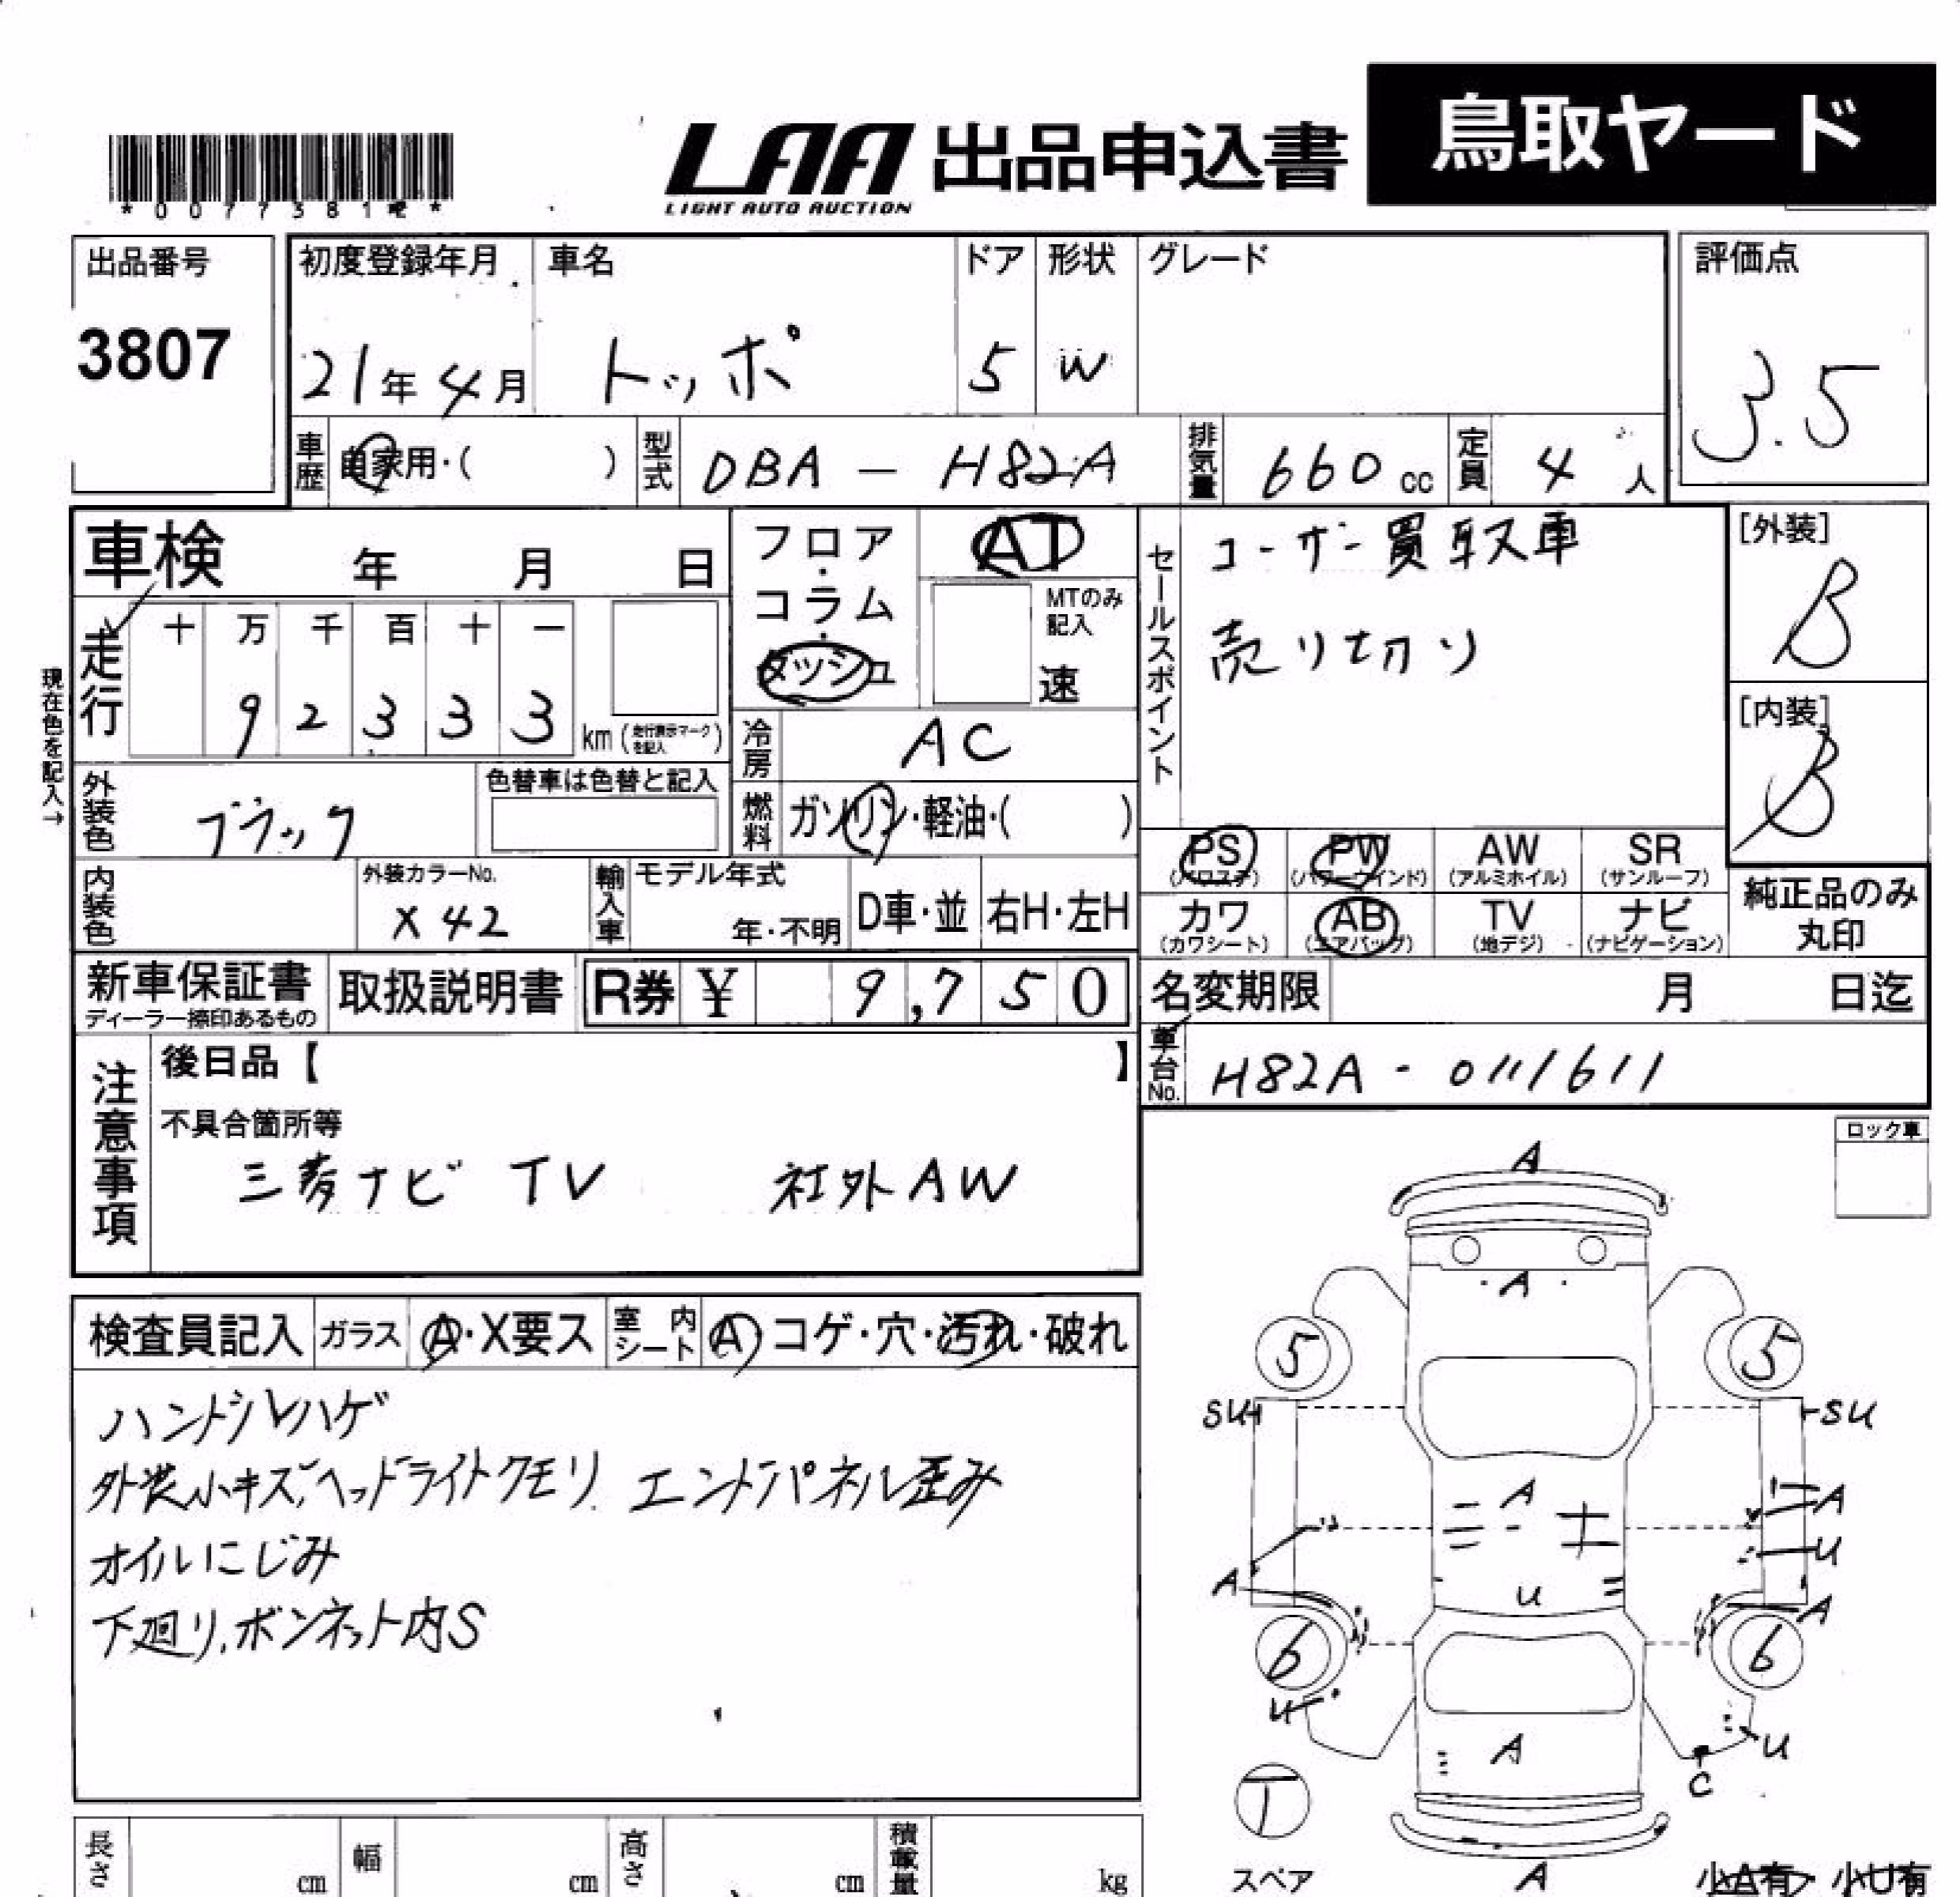 鳥取ヤード
LAA 出品申込書
LIGHT AUTO AUCTION
出品番号
3807
初度登録年月
21年4月
車名
トッポ
ドア
5
形状
W
グレード
評価点
3.5
車歴
自家用・(　　)
型式
DBA － H82A
排気量
660 cc
定員
4 人
車検　年　月　日
フロア・コラム・ダッシュ
AT
MTのみ記入
速
セールスポイント
ユーザー買取車
売り切り
[外装]
B
[内装]
B
現在色を記入→
走行
十 万 千 百 十 一
9 2 3 3 3
km (走行表示マークを記入)
冷房
AC
外装色
ブラック
色替車は色替と記入
燃料
ガソリン・軽油・(　　)
内装色
外装カラーNo.
X42
輸入車
モデル年式
年・不明
D車・並
右H・左H
PS (パワステ)
PW (パワーウインド)
AW (アルミホイル)
SR (サンルーフ)
カワ (カワシート)
AB (エアバッグ)
TV (地デジ)
ナビ (ナビゲーション)
純正品のみ丸印
新車保証書
ディーラー捺印あるもの
取扱説明書
R券 ¥ 9,750
名変期限　月　日迄
車台No.
H82A - 0111611
注意事項
後日品【　　】
不具合箇所等
三菱ナビ TV　社外AW
ロック車
検査員記入
ガラス
A・X要ス
室内シート
A コゲ・穴・汚れ・破れ
ハンドシレハゲ
外装小キズ、ヘッドライトクモリ エンドパネル歪み
オイルにじみ
下廻り、ボンネット内S
A
A
5
5
SU
SU
A
A
U
A
U
A
6
6
U
U
A
C
T
スペア
A
小A有・小U有
長さ
cm
幅
cm
高さ
cm
積載量
kg